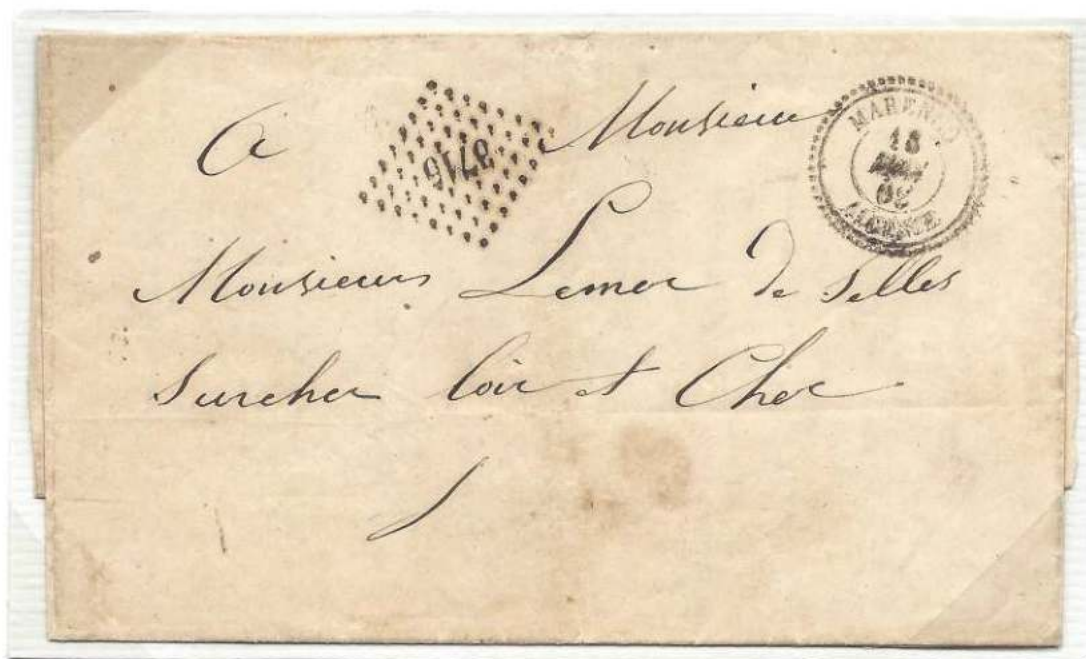 A Monsieur
3716
MARENGO
15
62
ALGERIE
Monsieur Lemer de Selles
Surcher Loir et Cher